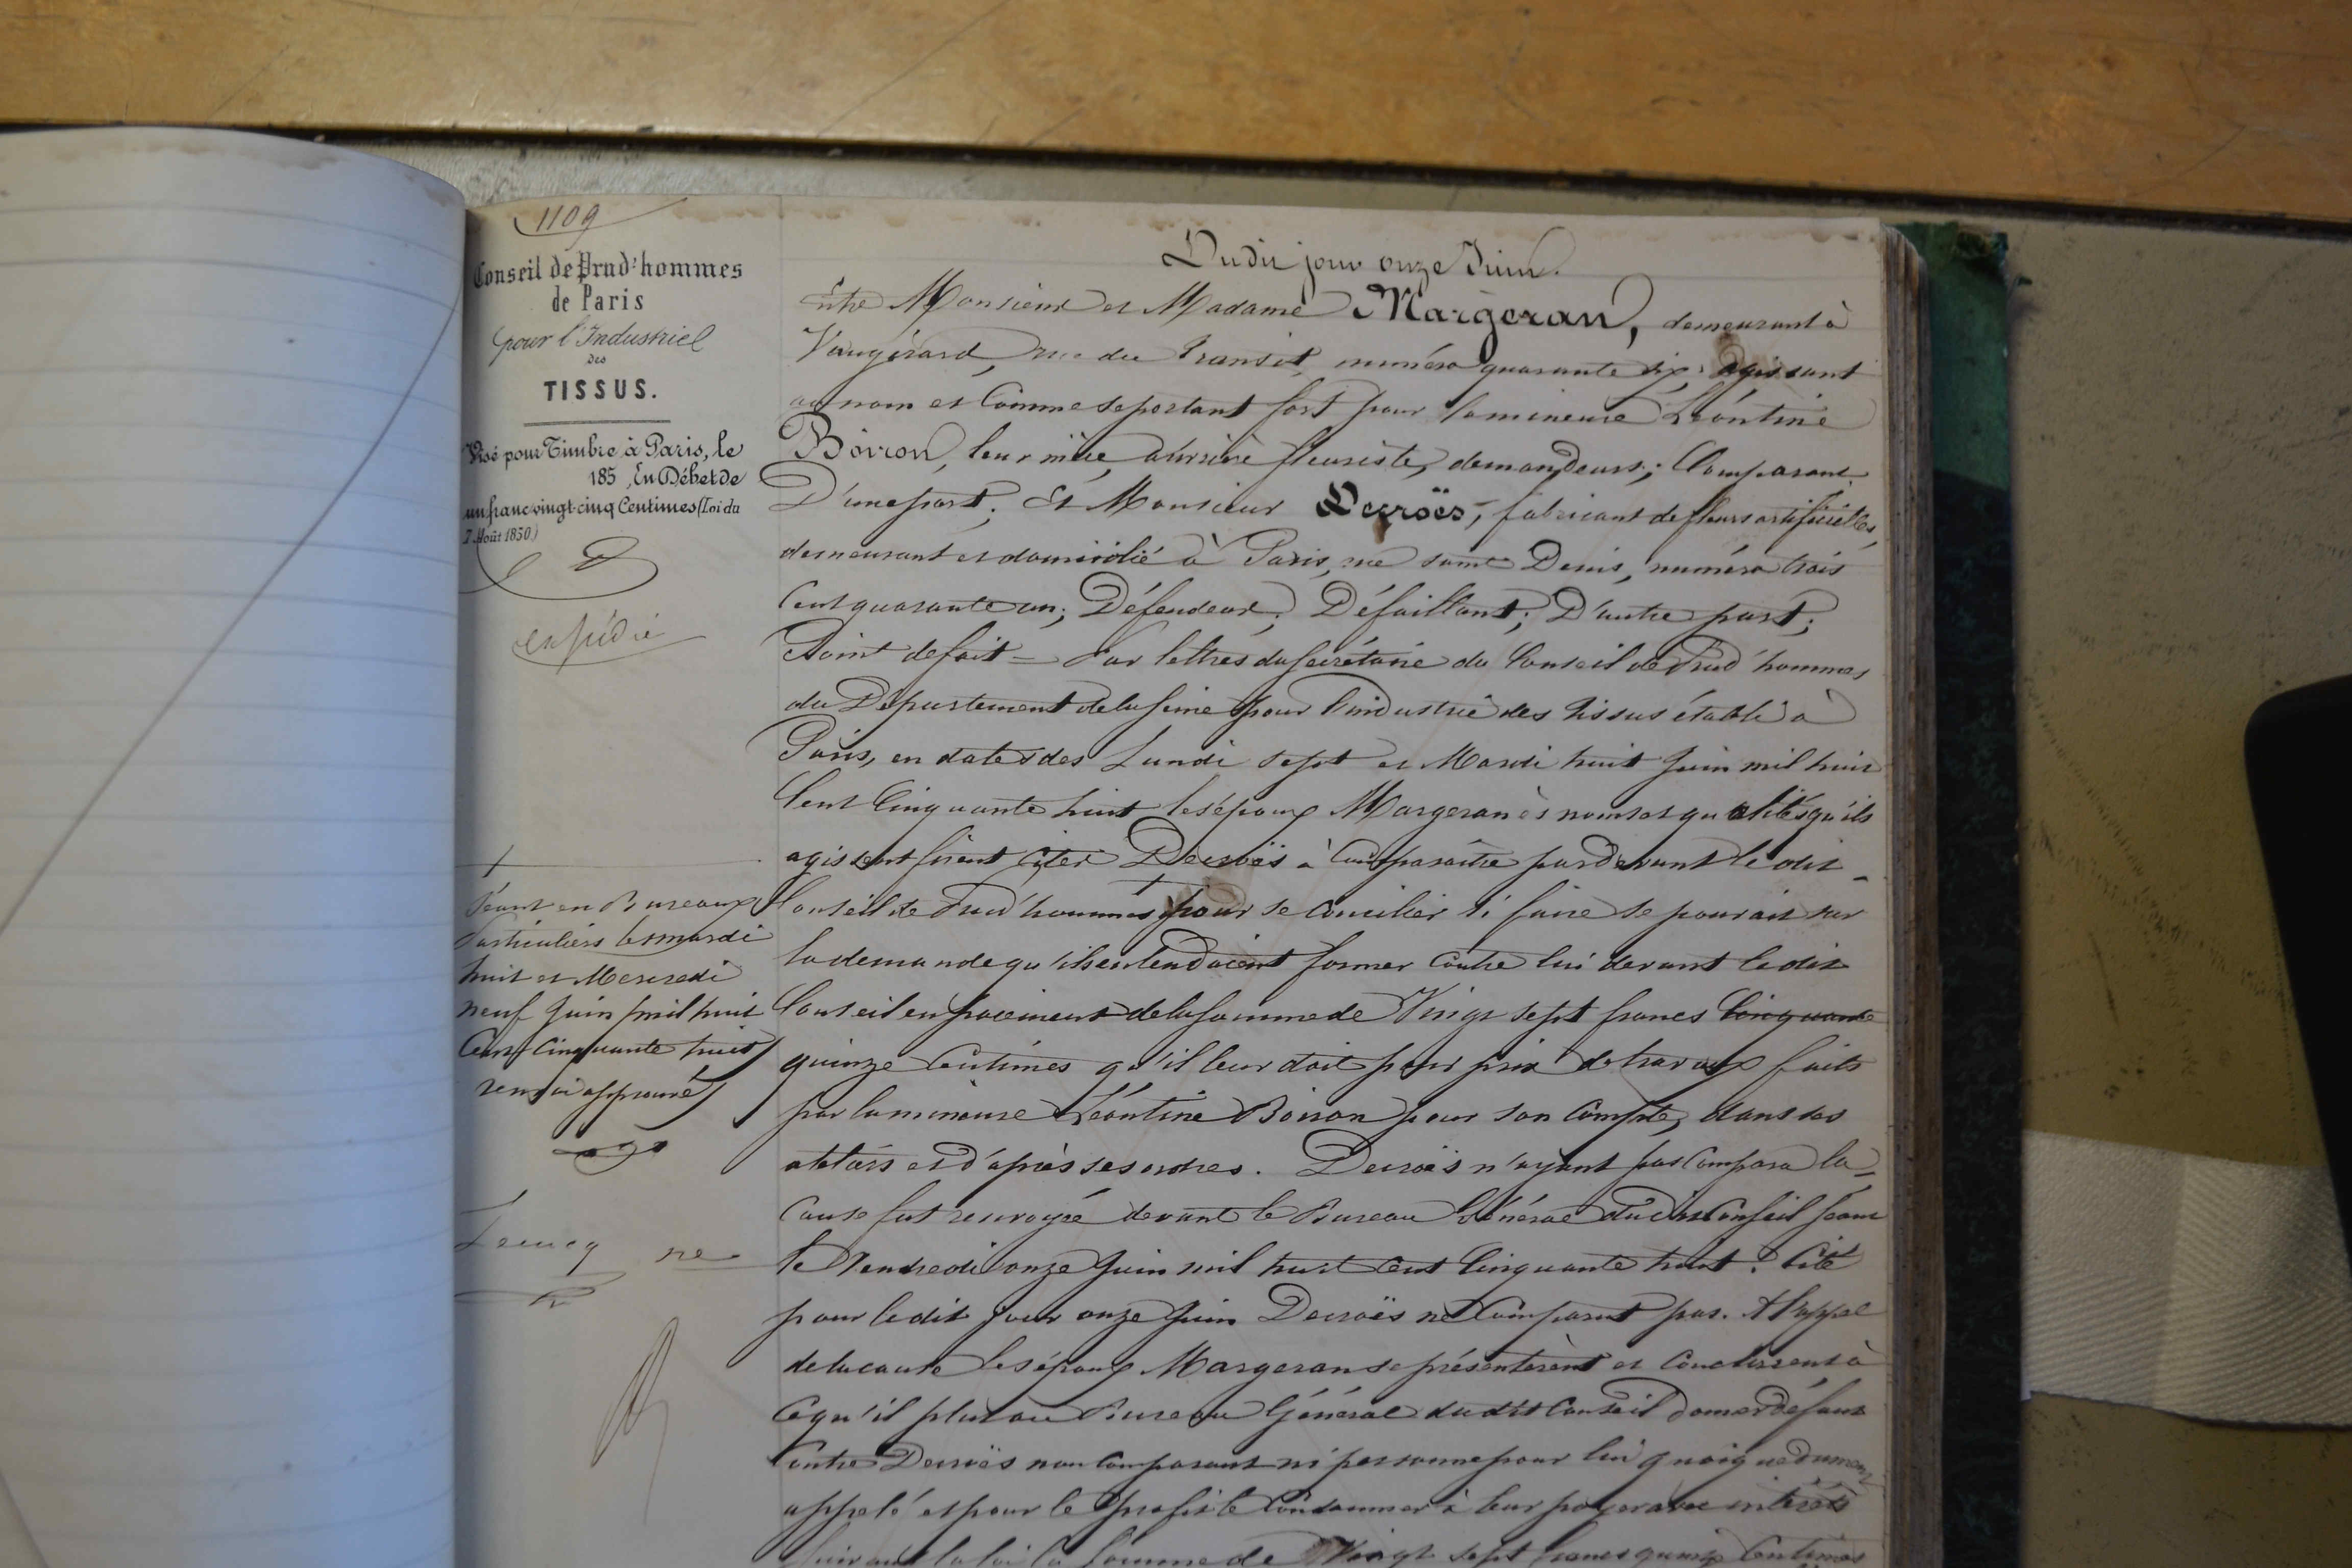 1109
Conseil de Prud'hommes
de Paris
pour l'Industriel
des
TISSUS.
Visé pour Timbre à Paris, le
185 , En Débet de
un franc vingt-cinq Centimes (Loi du
7 Août 1850)
expédié
séant en Bureaux
Particuliers les mardi
huit et Mercredi
neuf Juin mil huit
Cent Cinquante huit
renvoi approuvé
Dudit jour onze Juin.
Entre Monsieur et Madame Margeran, demeurant à
Vaugirard, rue du Transit, numéro quarante six; Agissant
au nom et Comme se portant fort pour la mineure Léontine
Boiron, leur nièce, ouvrière fleuriste, demandeurs; Comparant
D'une part; Et Monsieur Decroës, fabricant de fleurs artificielles,
demeurant et domicilié à Paris, rue saint Denis, numéro trois
Cent quarante un; Défendeur; Défaillant; D'autre part;
Point de fait = Par lettres du secrétaire du Conseil de Prud'hommes
du Département de la Seine pour l'industrie des tissus établi à
Paris, en dates des Lundi sept et Mardi huit Juin mil huit
Cent Cinquante huit les époux Margeran ès noms et qualités qu'ils
agissent firent citer Decroës à Comparaître pardevant le dit
Conseil de Prud'hommes + pour se concilier si faire se pouvait sur
la demande qu'ils entendaient former contre lui devant le dit
Conseil en paiement de la somme de Vingt sept francs Cinquante
quinze Centimes qu'il leur doit pour prix de travaux faits
par la mineure Léontine Boiron pour son Compte, dans ses
ateliers et d'après ses ordres. Decroës n'ayant pas Comparu la
Cause fut renvoyée devant le Bureau Général dudit Conseil séant
le Vendredi onze Juin mil huit Cent Cinquante huit. Cité
pour le dit jour onze Juin Decroës ne Comparut pas. A l'appel
de la cause les époux Margeran se présentèrent et Conclurent à
ce qu'il plut au Bureau Général dudit Conseil donner défaut
Contre Decroës non Comparant ni personne pour lui quoique dument
appelé et pour le profit le Condamner à leur payer avec intérêts
suivant la loi la somme de Vingt sept francs quinze Centimes